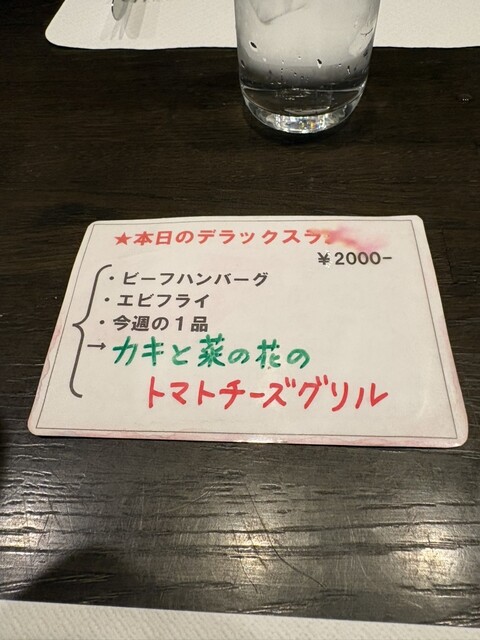 ★本日のデラックスラ
¥2000-
・ビーフハンバーグ
・エビフライ
・今週の1品
→カキと菜の花の
トマトチーズグリル